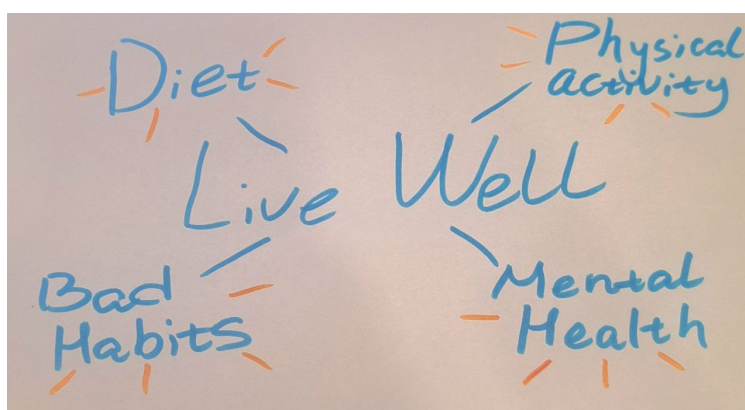 Diet
Physical
activity
Live Well
Bad
Habits
Mental
Health